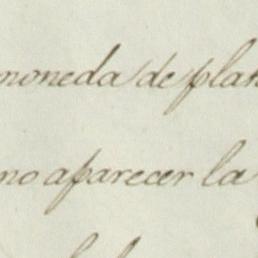 moneda de plat
no aparecer la